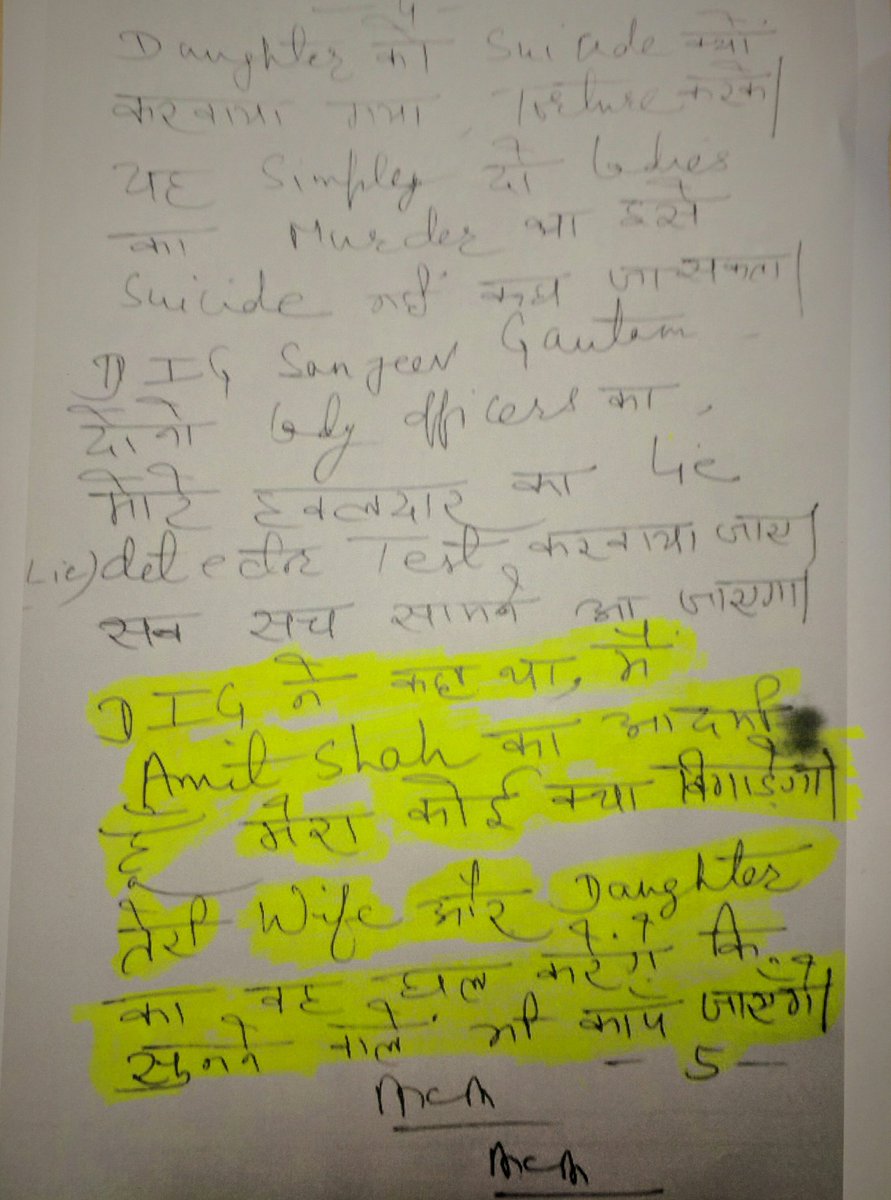 4
Daughter को Suicide क्यों
करवाया गया, Torture करके।
यह Simpley दो Ladies
का Murder था इसे
Suicide नहीं कहा जा सकता।
DIG Sanjeev Gautam
दोनो Lady officers का,
मोटे हवलदार का Lie
Lie) detectर Test करवाया जाए।
सब सच सामने आ जाएगा।
DIG ने कहा था, मैं
Amit Shah का आदमी
हूँ मेरा कोई क्या बिगाड़ेगा।
तेरी Wife और Daughter
का वह हाल करेंगे कि
सुनने वाले भी काँप जाएँगे।
– 5 –